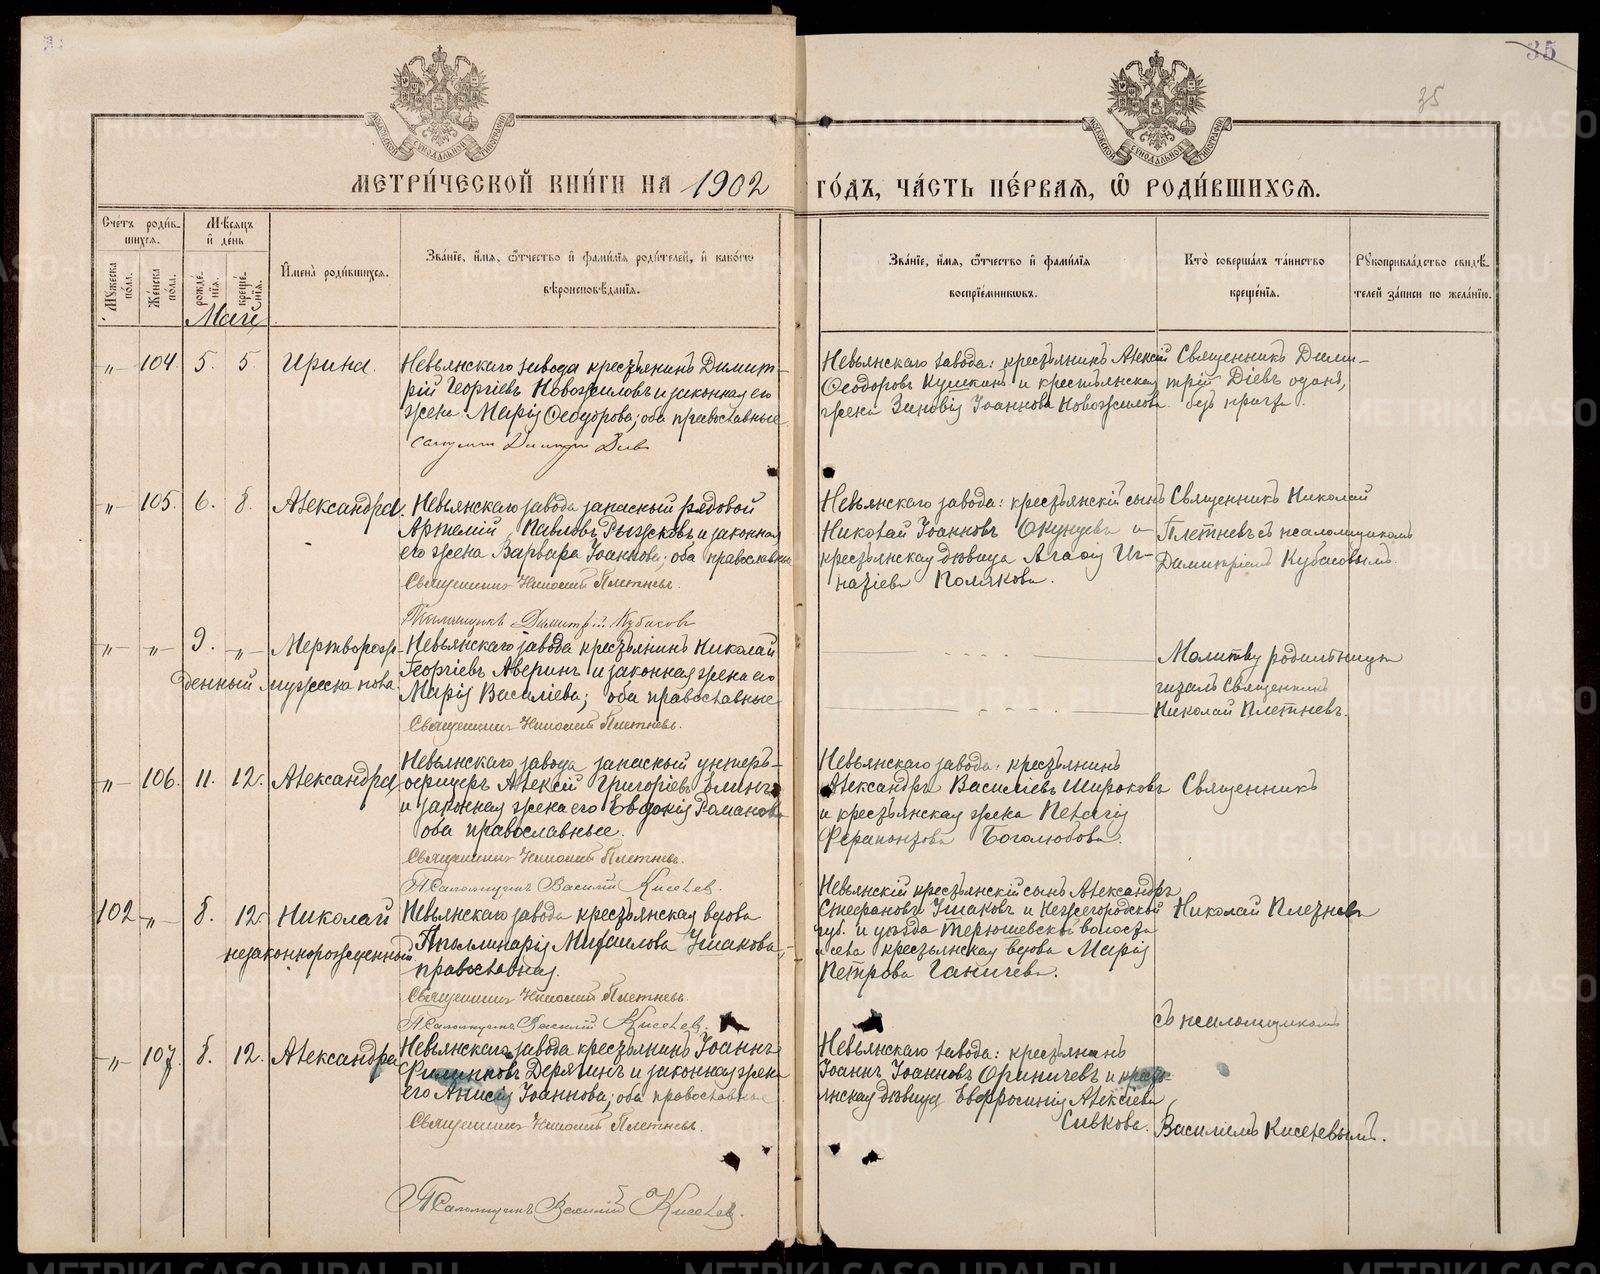 35
35
МЕТРИ́ЧЕСКОЙ КНИ́ГИ НА 1902 ГО́ДЪ, ЧА́СТЬ ПЕ́РВАѦ, Ѡ҆ РОДИ́ВШИХСѦ.
Сче́тъ роди́в-
шихсѧ.
Мꙋжеска по́ла.
Же́нска по́ла.
Мѣ́сѧцъ
и҆ де́нь
рожде́-
нїѧ.
креще́-
нїѧ.
Май
И҆мена̀ роди́вшихсѧ.
Зва́нїе, и҆́мѧ, ѻ҆́тчество и҆ фами́лїѧ роди́телей, и҆ како́гѡ
вѣроисповѣ́данїѧ.
Зва́нїе, и҆́мѧ, ѻ҆́тчество и҆ фами́лїѧ
воспрїе́мниковъ.
Кто̀ соверша́лъ та́инство
креще́нїѧ.
Рꙋкоприкла́дство свидѣ́-
телей за́писи по жела́нїю.
„ 104 5. 5. Ирина.
Невьянскаго завода крестьянинъ Димит-
рій Георгіевъ Новожиловъ и законная его
жена Марія Ѳеодорова; оба православные
Невьянскаго завода: крестьянинъ Алексій
Ѳеодоровъ Кушкинъ и крестьянская
жена Зиновія Іоаннова Новожилова.
Священникъ Дими-
трій Діевъ одинъ,
безъ причта.
„ 105. 6. 8. Александра.
Невьянскаго завода запасный рядовой
Артемій Павловъ Рыжковъ и законная
его жена Варвара Іоаннова; оба православные
Священникъ Николай Плетневъ.
Псаломщикъ Димитрій Кубасовъ
Невьянскаго завода: крестьянскій сынъ
Николай Іоанновъ Окунцевъ и
крестьянская дѣвица Агаѳія Иг-
натіева Полякова.
Священникъ Николай
Плетневъ съ псаломщикомъ
Димитріемъ Кубасовымъ.
„ „ 9. „ Мертворож-
денный мужеска пола.
Невьянскаго завода крестьянинъ Николай
Георгіевъ Аверинъ и законная жена его
Марія Василіева; оба православные
Священникъ Николай Плетневъ.
Молитву родильницѣ
читалъ Священникъ
Николай Плетневъ.
„ 106. 11. 12. Александра
Невьянскаго завода запасный унтеръ-
офицеръ Алексій Григоріевъ
и законная жена его Евдокія Романова
оба православные.
Священникъ Николай Плетневъ.
Псаломщикъ Василій Киселев.
Невьянскаго завода: крестьянинъ
Александръ Василіевъ Широковъ
и крестьянская жена Пелагія
Ферапонтова Боголюбова.
Священникъ
102 „ 8. 12. Николай
незаконнорожденный
Невьянскаго завода крестьянская вдова
Аполлинарія Михаилова Ушакова,
православная.
Священникъ Николай Плетневъ.
Псаломщикъ Василій Киселев.
Невьянскій крестьянскій сынъ Александръ
Стефановъ Ушаковъ и Нижегородской
губ. и уѣзда Терюшевской волости
и села крестьянская вдова Марія
Петрова Ганичева.
Николай Плетневъ
„ 107. 8. 12. Александра
Невьянскаго завода крестьянинъ Іоаннъ
Филипповъ Дерягинъ и законная жена
его Анисія Іоаннова; оба православные
Священникъ Николай Плетневъ.
Псаломщикъ Василій Киселев.
Невьянскаго завода: крестьянинъ
Іоаннъ Іоанновъ Ориничевъ и кресть-
янская дѣвица Евфросинія Алексіева
Сивкова.
съ псаломщикомъ
Василіемъ Киселевымъ.
METRIKI.GASO-URAL.RU